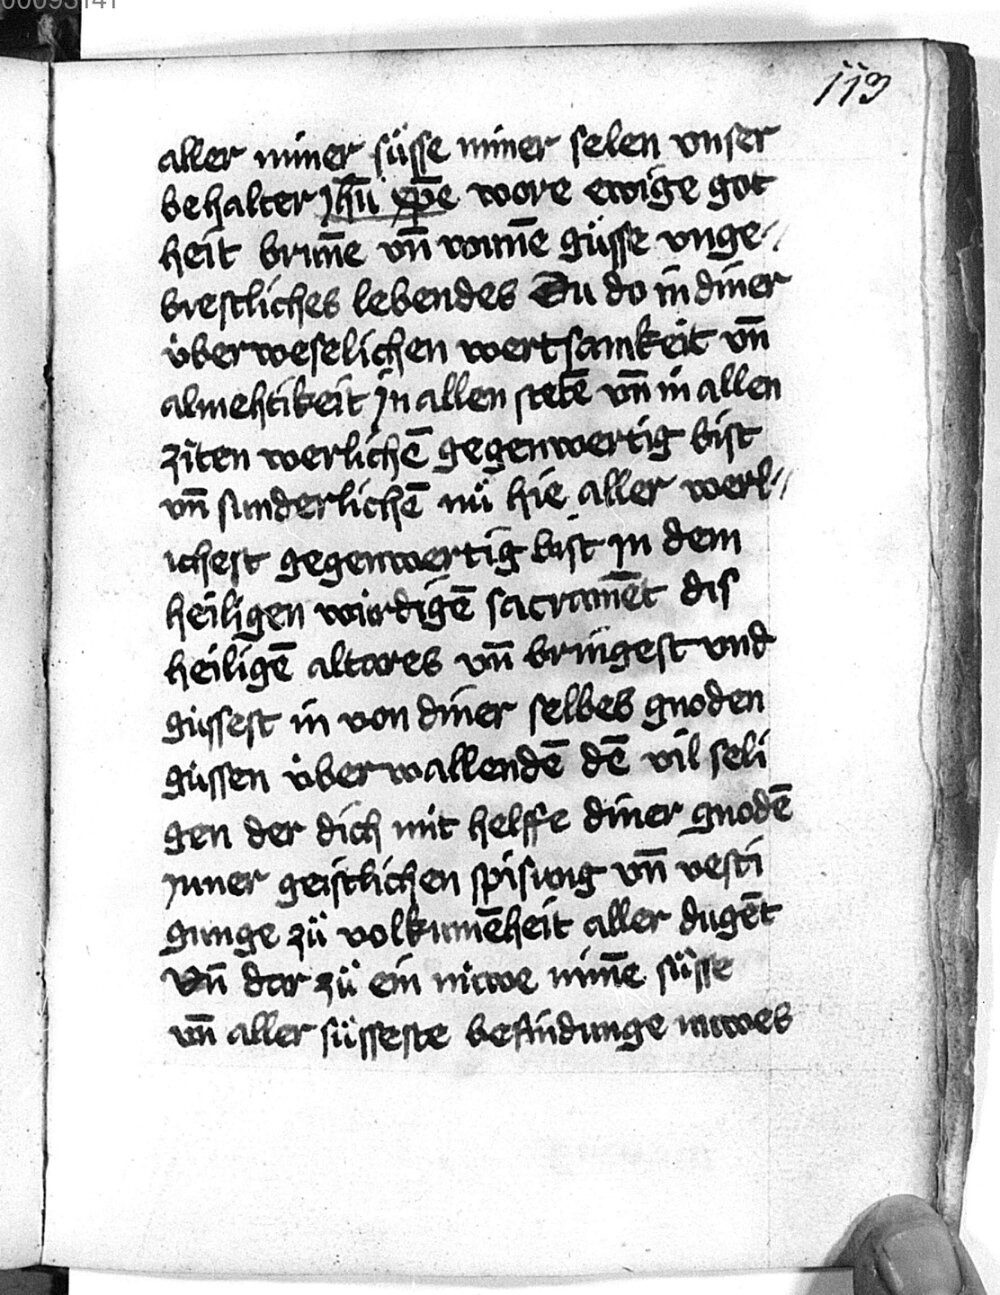 113
aller miner süsse miner selen vnser
behalter Jhū xpē wore ewige got
heit brinnē vn̄ wunnē güsse vnge//
brestliches lebendes Du do in diner
überweselichen wertsamkeit vn̄
almehtikeit Jn allen stetē vn̄ in allen
ziten werlichē gegenwertig bist
vn̄ sunderlichē nü hie aller werl//
ichest gegenwertig bist jn dem
heiligen wirdigē sacramēt dis
heiligē altares vn̄ bringest vnd
güssest in von diner selbes gnoden
güssen überwallendē dē vil seli
gen der dich mit helffe diner gnodē
Jnner geistlichen spisung vn̄ vesti
gunge zü volkumēheit aller dugēt
Vn̄ dar zü ein nuwe nimē süsse
vn̄ aller süsseste befindunge nuwes